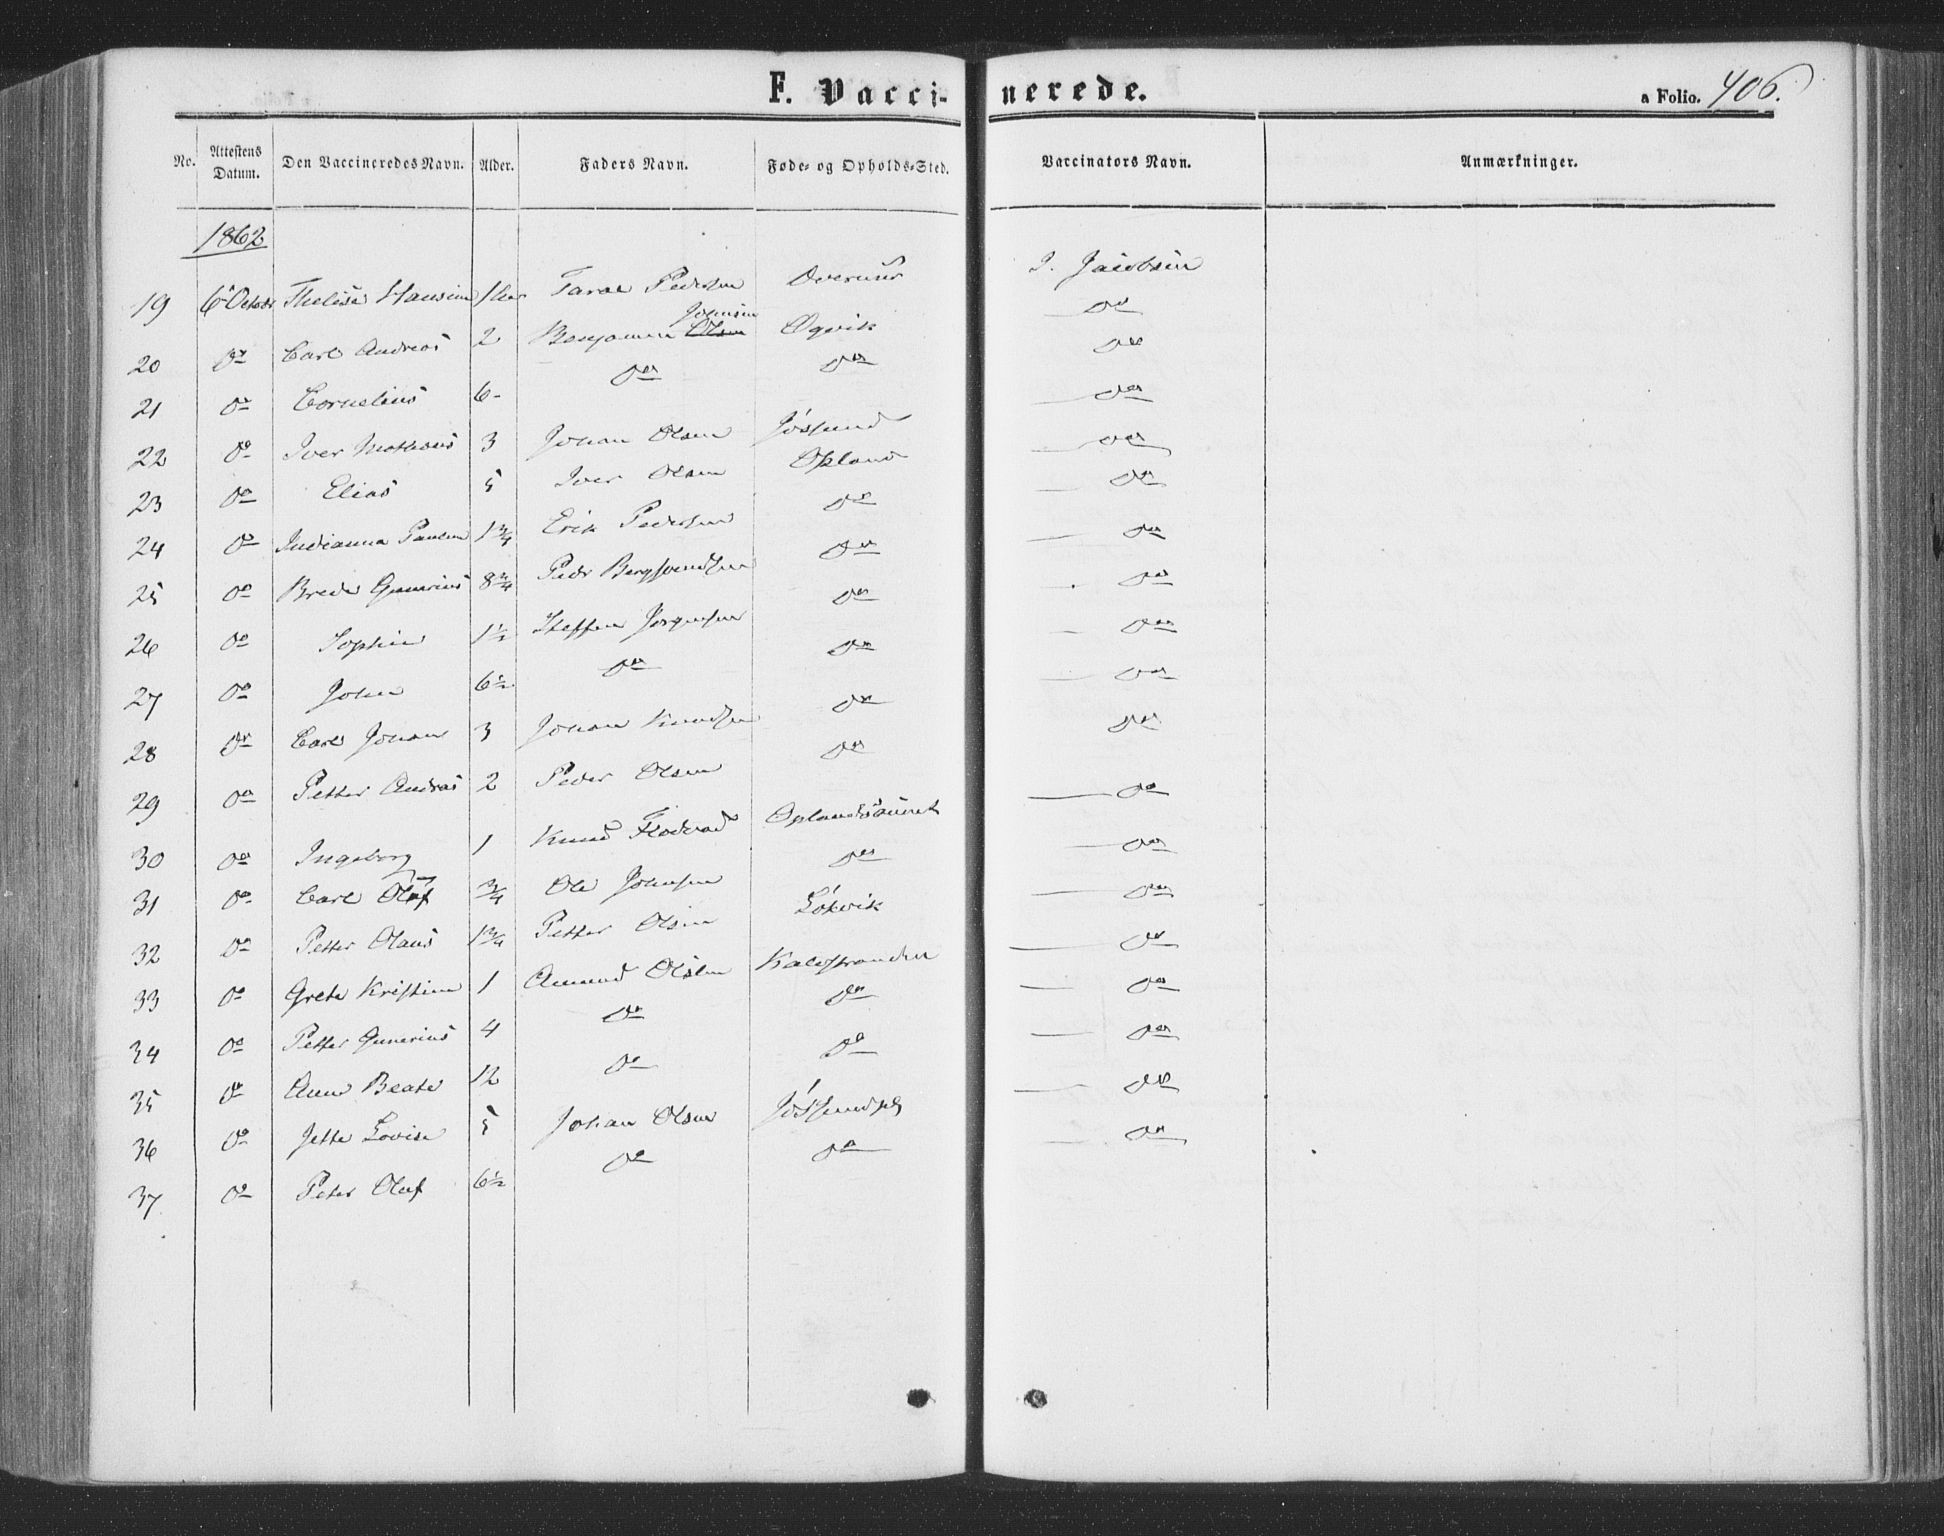 F. Vaccinerede.
a Folio. 406.
No. Attestens Datum. Den Vaccineredes Navn. Alder. Faders Navn. Føde- og Opholds-Sted. Vaccinators Navn. Anmærkninger.
1862
19 6 Octobr Hansine 1 Pedersen J. Jacobsen
20 do Carl Andreas 2 Benjamin Olsen Johnsen do
21 do Cornelius 6 do do do
22 do Iver Mathæus 3 Johan Olsen Jøssund do
23 do Elias 5 Iver Olsen Opland do
24 do Indianna 1 3/4 Erik Pedersen do do
25 do Brede Gunerius 8 3/4 Peder Bergsvendsen do do
26 do Sophie 1 1/2 Steffen Jørgensen do do
27 do John 6 1/2 do do do
28 do Carl Johan 3 Johan Knudsen do do
29 do Petter Andreas 2 Peder Olsen do do
30 do Ingeborg 1 Knud do
31 do Carl Oluf 3/4 Ole Johnsen do do
32 do Petter Olaus 1 3/4 Petter Olsen Løkvik do
33 do Grete Kristine 1 Amund Olsen do
34 do Petter Gunerius 4 do do do
35 do Anne Beate 12 do do do
36 do Jette Lovise 5 Johan Olsen do
37 do Peter Oluf 6 1/2 do do do